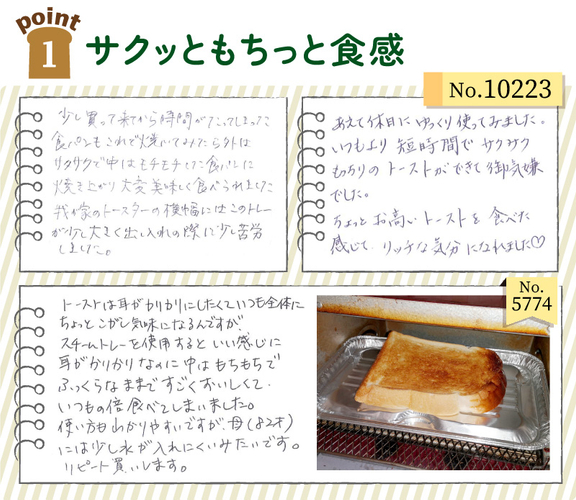 point
1
サクッともちっと食感
No.10223
少し買って来てから時間がたってしまった
食パンもこれで焼いてみたら外は
サクサクで中はモチモチした食パンに
焼き上がり大変美味しく食べられました
我が家のトースターの横幅にはこのトレー
が少し大きく出し入れの際に少し苦労
しました。
あえて休日にゆっくり使ってみました。
いつもより短時間でサクサク
もっちりのトーストができて御機嫌
でした。
ちょっとお高いトーストを食べた
感じで、リッチな気分になれました♡
No.
5774
トーストは耳がかりかりにしたくていつも全体に
ちょっとこがし気味になるんですが
スチームトレーを使用するといい感じに
耳がかりかりなのに中はもちもちで
ふっくらなままですごくおいしくて、
いつもの倍食べてしまいました。
使い方もわかりやすいですが、母(82才)
には少し水が入れにくいみたいです。
リピート買いします。